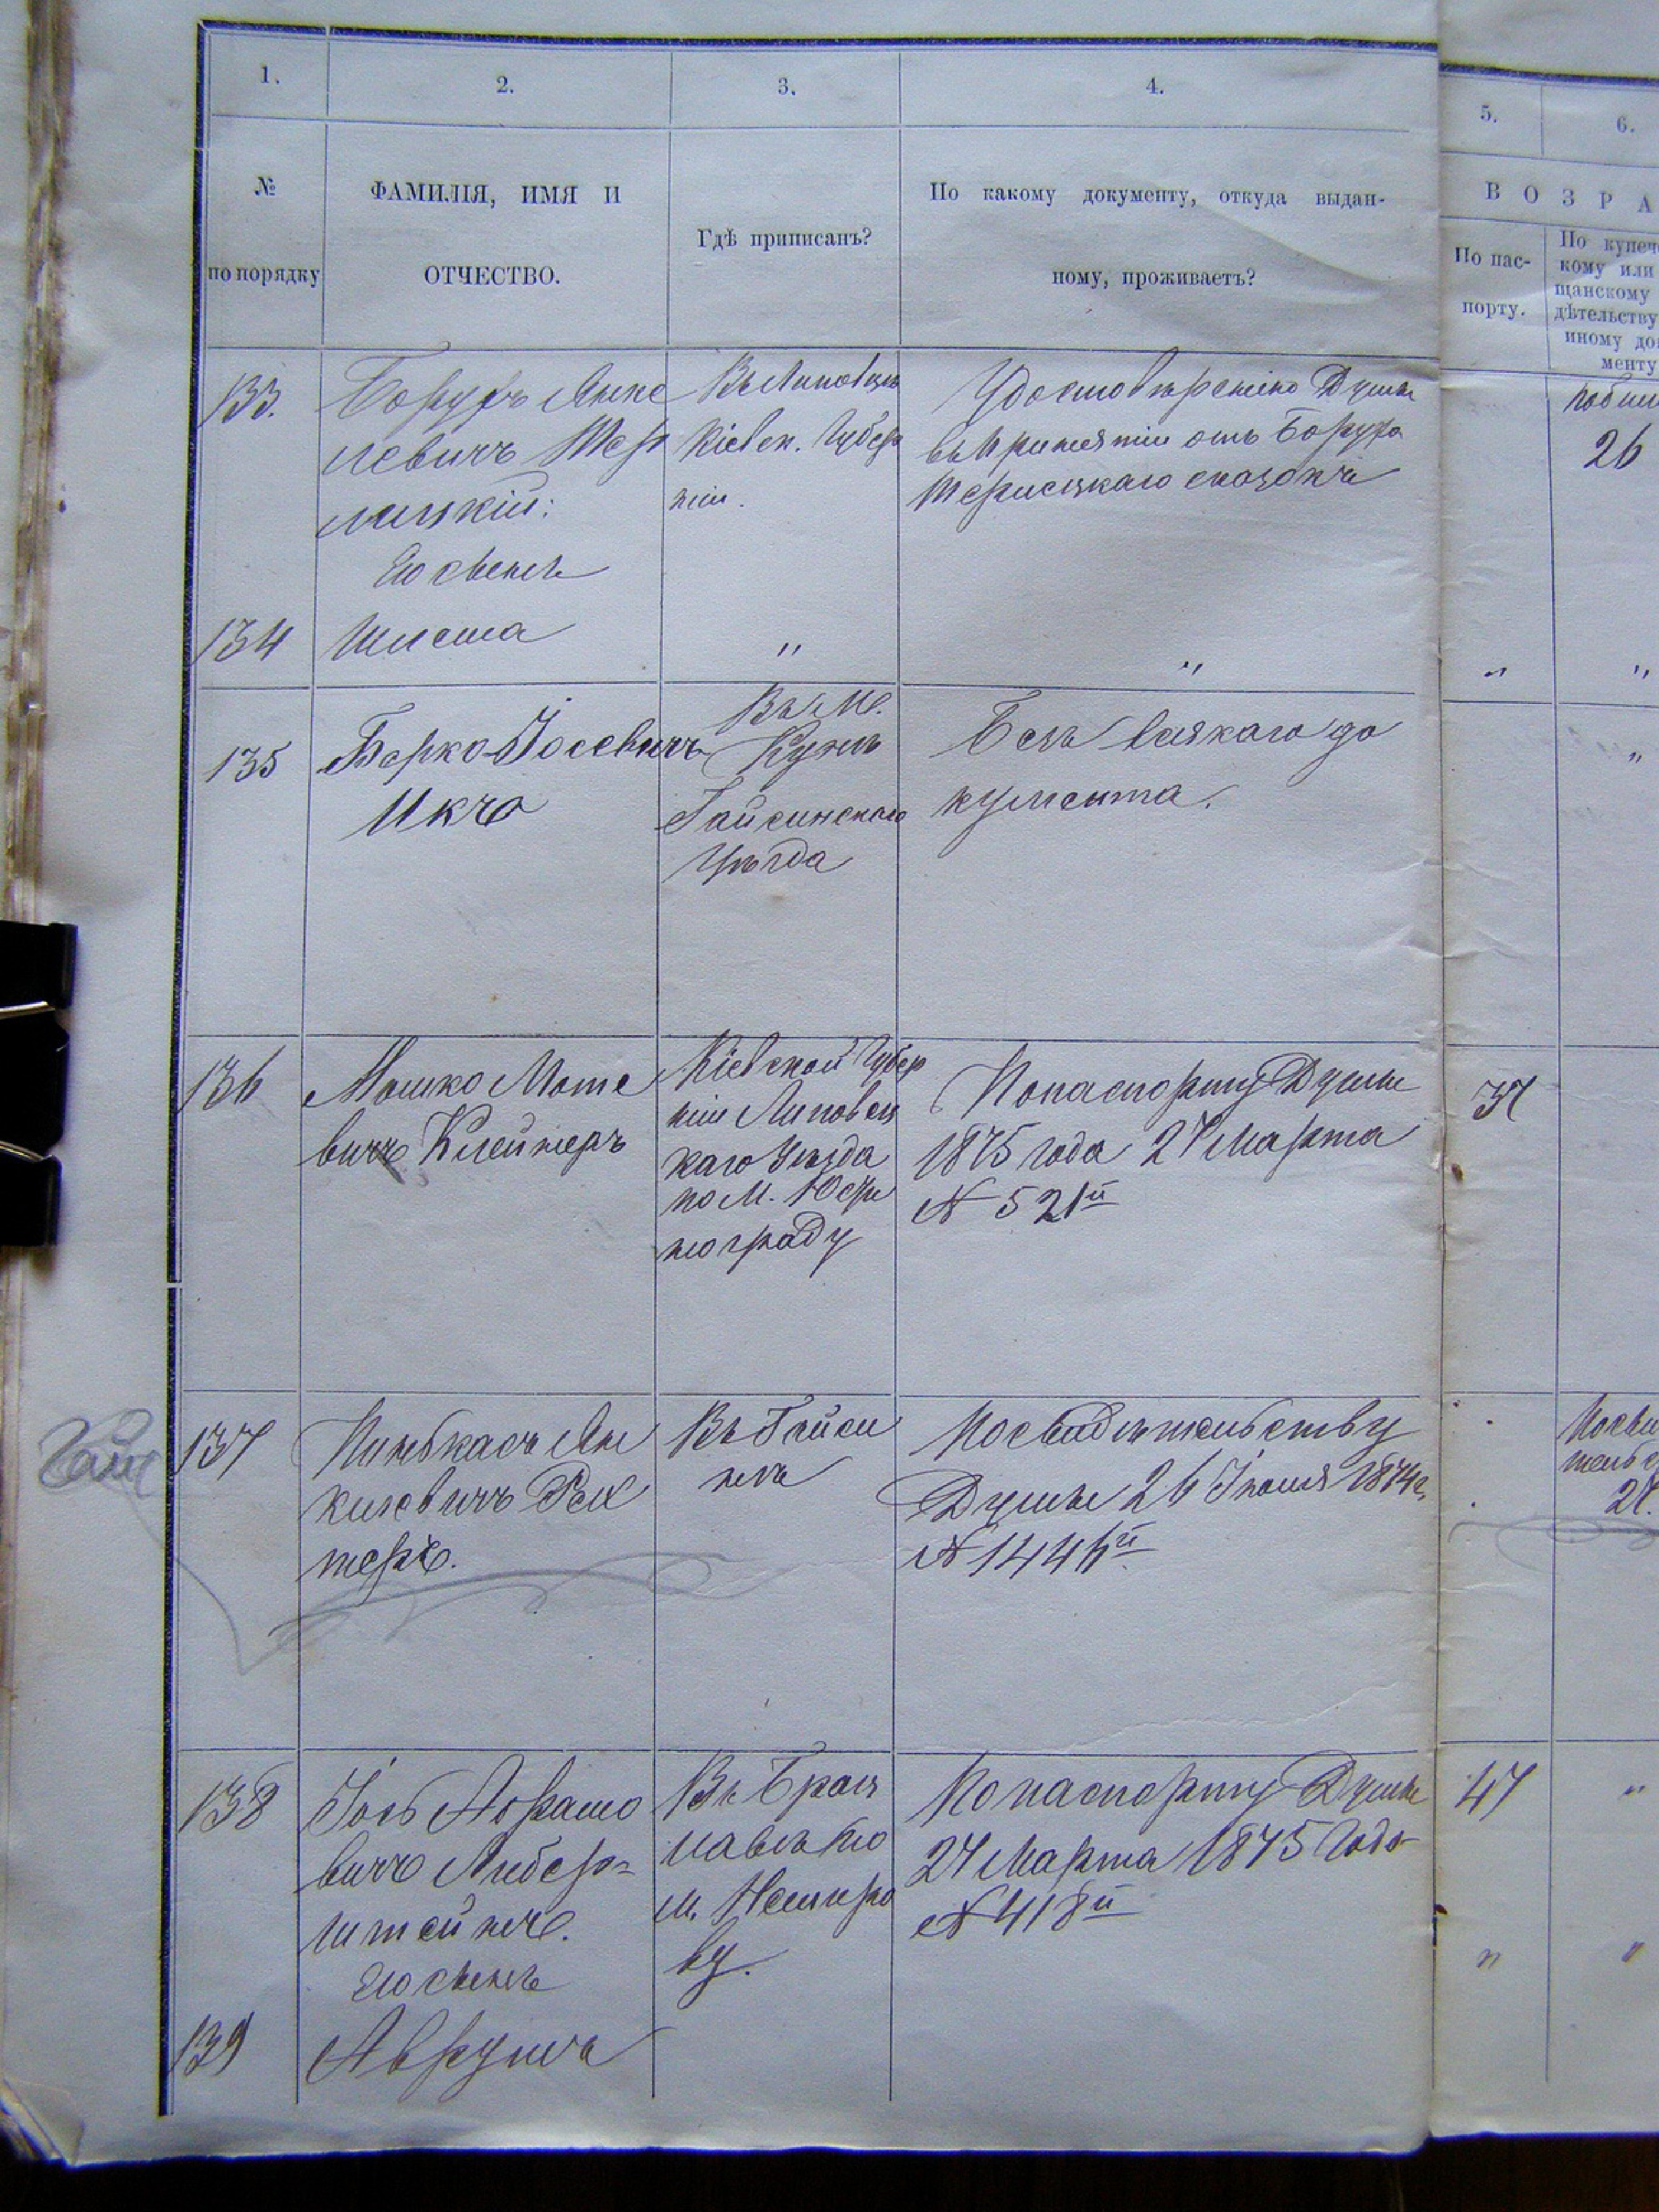 1.
2.
3.
4.
5.
6.
№
по порядку
ФАМИЛІЯ, ИМЯ И
ОТЧЕСТВО.
Гдѣ приписанъ?
По какому документу, откуда выдан-
ному, проживаетъ?
ВОЗРА
По пас-
порту.
По купеч
кому или
щанскому
дѣтельству
иному до
менту
133.
Борухъ Янке
левичъ Тер
лицкій:
Его сынъ
Въ Липовцѣ
Кіевск. Губер
ніи.
Удостовѣреніе Думы
въ принятіи отъ Боруха
сказокъ
26
134
"
"
"
"
135
Берко Іосевичъ
Въ М.
Гайсинскаго
Уѣзда
Безъ всякаго до
кумента.
"
136
Мошко Моте
вичъ Клейнеръ
Кіевской Губер
ніи Липовец
каго Уѣзда
по М.
нограду
По паспорту Думы
1875 года 27 Марта
№ 521й
37
137
Пинькасъ Ян
келевичъ Рех
теръ.
Въ Гайси
нѣ
По свидѣтельству
Думы 26 Іюня 1874 г.
№ 1446й
По сви
тельс
27.
138
Іось Аврамо
вичъ Либер-
штейнъ.
Его сынъ
Въ Брац
лавѣ по
м. Немиро
ву.
По паспорту Думы
24 Марта 1875 Года
№ 418й
47
"
139
Аврумъ
"
"